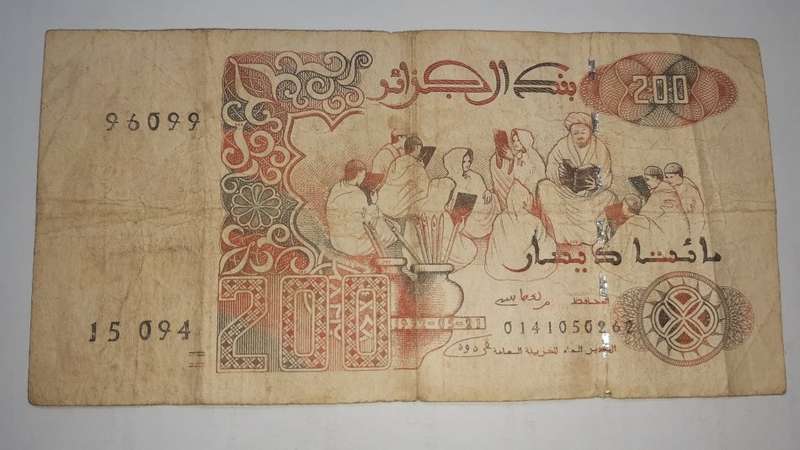 بنك الجزائر
200
96099
مائتا دينار
المحافظ
15 094
200
1992-05-21
0141050262
المدير العام للخزينة العامة